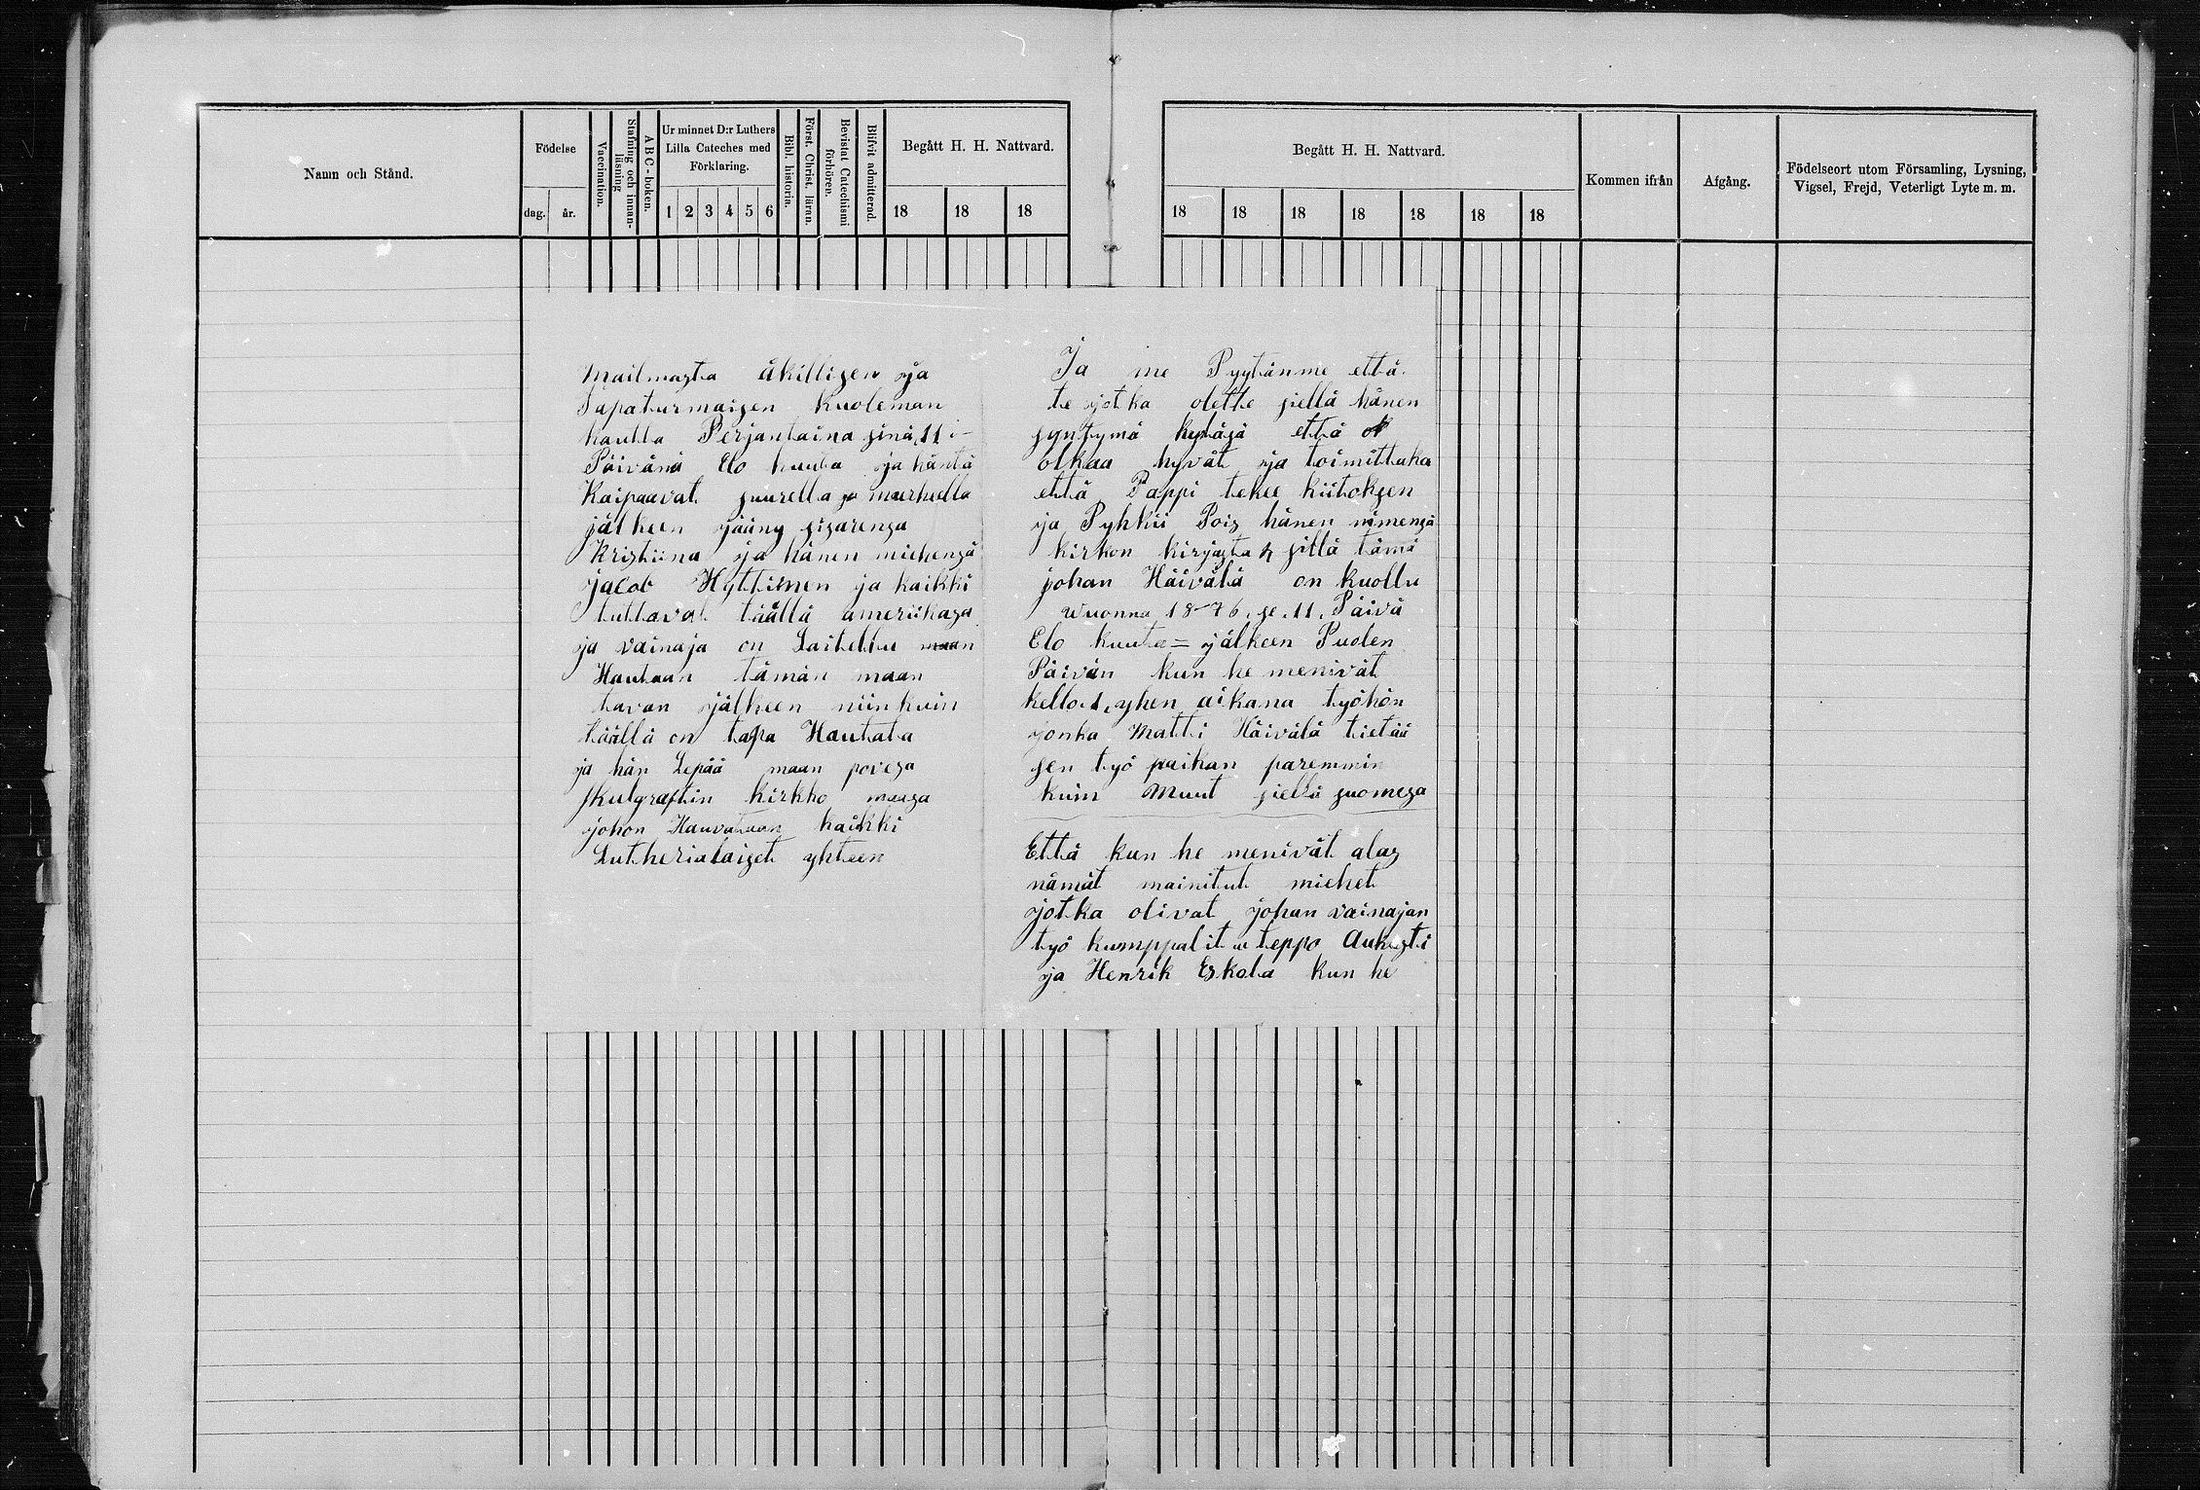 Namn och Stånd.
Födelse
dag.
år.
Vaccination.
Stafning och innan-
läsning
ABC-boken.
Ur minnet D:r Luthers
Lilla Cateches med
Förklaring.
1 2 3 4 5 6
Bibl. historia.
Först. Christ. läran.
Bevistat Catechismi
förhören.
Blifvit admitterad.
Begått H. H. Nattvard.
18 18 18
Begått H. H. Nattvard.
18 18 18 18 18 18 18
Kommen ifrån
Afgång.
Födelseort utom Församling, Lysning,
Vigsel, Frejd, Veterligt Lyte m. m.
Mailmasta äkillisen ja
Tapaturmaisen kuoleman
kautta Perjantaina sinä 11 i-
Päivänä Elo kuuta ja häntä
Kaipaavat suurella ja murhella
jälkeen jääny sisarensa
Kristiina ja hänen miehensä
jacob Hyttinen ja kaikki
tuttavat täällä ameriikasa
ja vainaja on Laitettu maan
Hautaan tämän maan
tavan jälkeen niinkuin
täällä on tapa Hautata
ja hän Lepää maan povesa
skulgraftin kirkko maasa
johon Hauvataan kaikki
Lutherialaiset yhteen
Ja me Pyytänme että
te jotka olette siellä hänen
syntymä kyläsä että
olkaa hyvät ja toimittaka
että Pappi tekee kiitoksen
ja Pyhkii Pois hänen nimensä
kirkon kirjasta sillä tämä
johan Häivälä on kuollu
wuonna 18-76. se. 11. Päivä
Elo kuuta= jälkeen Puolen
Päivän kun he menivät
kello 1. yhen aikana työhön
jonka Matti Häivälä tietää
sen työ paikan paremmin
kuin Muut siellä suomesa
Että kun he menivät alas
nämät mainitut miehet
jotka olivat johan vainajan
työ kumppalit teppo Aukusti
ja Henrik Eskola kun he